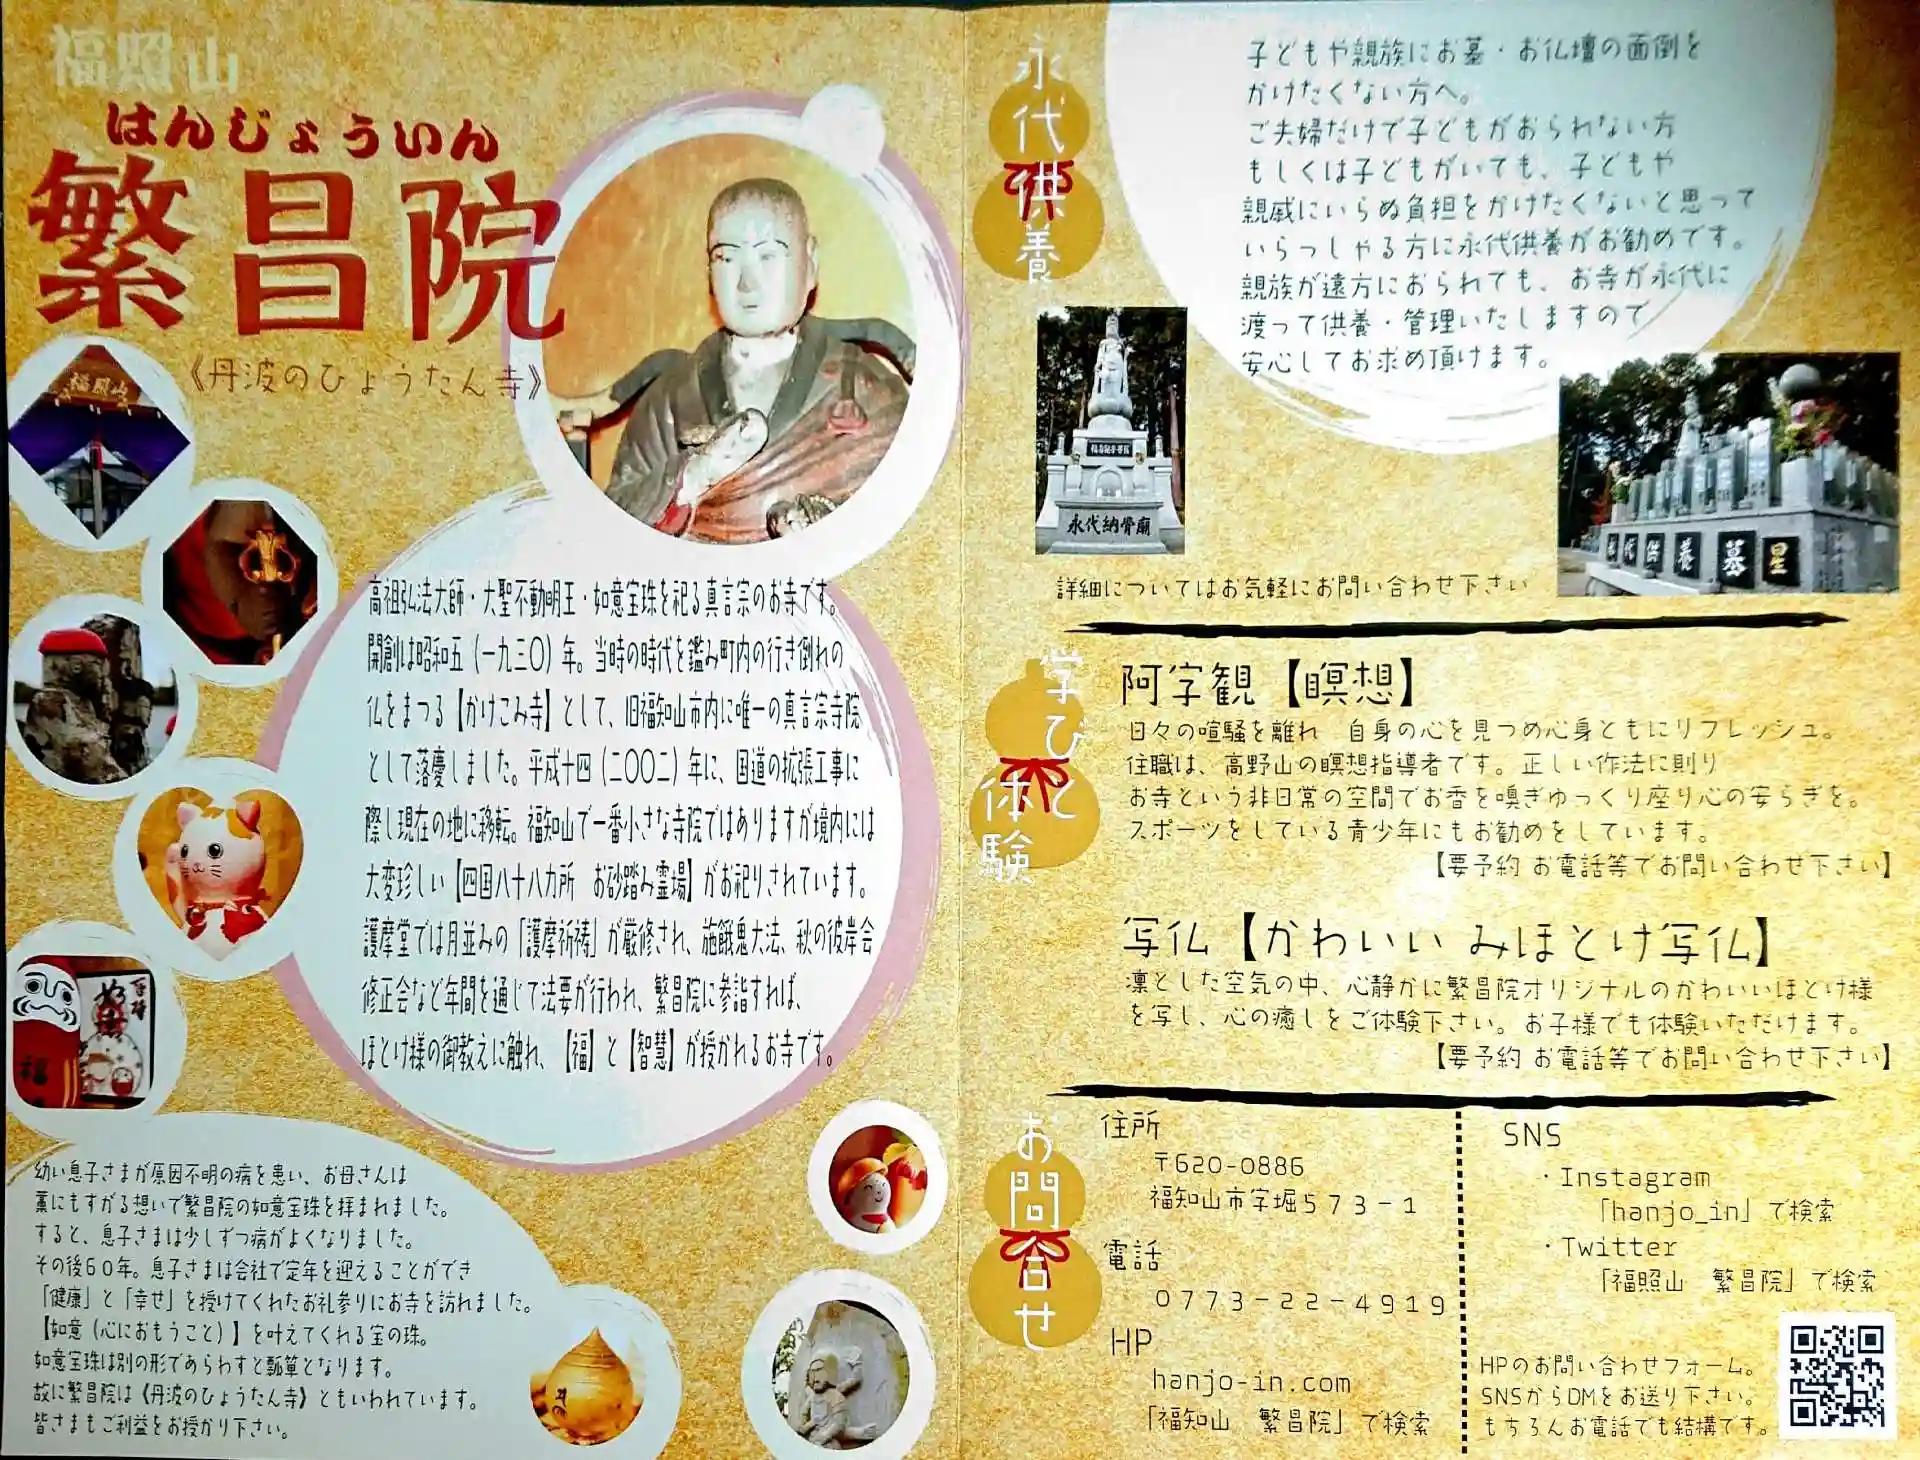 福照山
はんじょういん
繁昌院
《丹波のひょうたん寺》
福照山
高祖弘法大師・大聖不動明王・如意宝珠を祀る真言宗のお寺です。
開創は昭和五（一九三〇）年。当時の時代を鑑み町内の行き倒れの
仏をまつる【かけこみ寺】として、旧福知山市内に唯一の真言宗寺院
として落慶しました。平成十四（二〇〇二）年に、国道の拡張工事に
際し現在の地に移転。福知山で一番小さな寺院ではありますが境内には
大変珍しい【四国八十八カ所　お砂踏み霊場】がお祀りされています。
護摩堂では月並みの「護摩祈祷」が厳修され、施餓鬼大法、秋の彼岸会
修正会など年間を通じて法要が行われ、繁昌院に参詣すれば、
ほとけ様の御教えに触れ、【福】と【智慧】が授かれるお寺です。
福
幼い息子さまが原因不明の病を患い、お母さんは
藁にもすがる想いで繁昌院の如意宝珠を拝まれました。
すると、息子さまは少しずつ病がよくなりました。
その後６０年。息子さまは会社で定年を迎えることができ
「健康」と「幸せ」を授けてくれたお礼参りにお寺を訪れました。
【如意（心におもうこと）】を叶えてくれる宝の珠。
如意宝珠は別の形であらわすと瓢箪となります。
故に繁昌院は《丹波のひょうたん寺》ともいわれています。
皆さまもご利益をお授かり下さい。
永代供養
子どもや親族にお墓・お仏壇の面倒を
かけたくない方へ。
ご夫婦だけで子どもがおられない方
もしくは子どもがいても、子どもや
親戚にいらぬ負担をかけたくないと思って
いらっしゃる方に永代供養がお勧めです。
親族が遠方におられても、お寺が永代に
渡って供養・管理いたしますので
安心してお求め頂けます。
永代納骨廟
永代供養墓 星
詳細についてはお気軽にお問い合わせ下さい
学びと体験
阿字観【瞑想】
日々の喧騒を離れ　自身の心を見つめ心身ともにリフレッシュ。
住職は、高野山の瞑想指導者です。正しい作法に則り
お寺という非日常の空間でお香を嗅ぎゆっくり座り心の安らぎを。
スポーツをしている青少年にもお勧めをしています。
【要予約 お電話等でお問い合わせ下さい】
写仏【かわいい みほとけ写仏】
凛とした空気の中、心静かに繁昌院オリジナルのかわいいほとけ様
を写し、心の癒しをご体験下さい。お子様でも体験いただけます。
【要予約 お電話等でお問い合わせ下さい】
お問合せ
住所
〒620-0886
福知山市字堀５７３－１
電話
０７７３－２２－４９１９
HP
hanjo-in.com
「福知山　繁昌院」で検索
SNS
・Instagram
「hanjo_in」で検索
・Twitter
「福照山　繁昌院」で検索
HPのお問い合わせフォーム。
SNSからDMをお送り下さい。
もちろんお電話でも結構です。